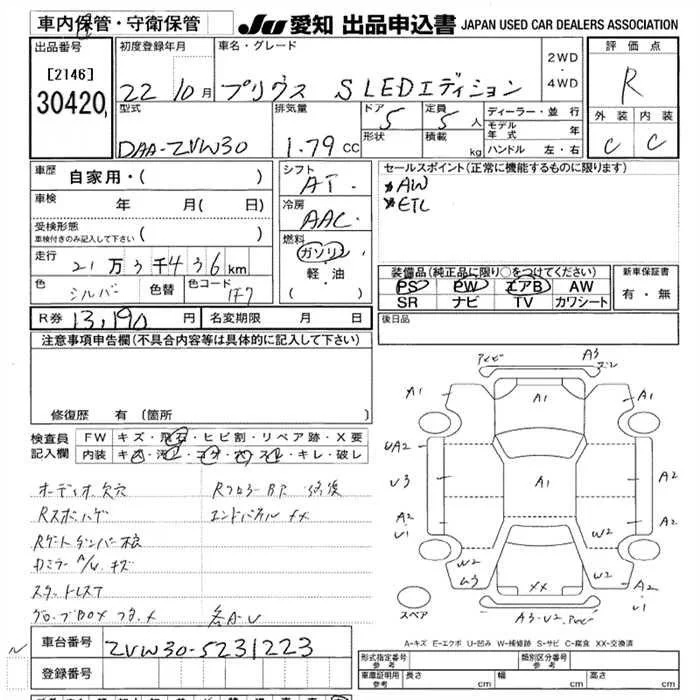 車内保管・守衛保管
JU 愛知 出品申込書 JAPAN USED CAR DEALERS ASSOCIATION
出品番号
[2146]
30420
初度登録年月
22 10月
車名・グレード
プリウス S LEDエディション
2WD
・
4WD
評価点
R
外装 内装
C C
型式
DAA-ZVW30
排気量
1.79 CC
ドア 5
形状
定員 5 人
積載 kg
ディーラー・並行
モデル年式 年
ハンドル 左・右
車歴 自家用・( )
車検 年 月( 日)
受検形態
車検付きのみ記入して下さい ( )
走行 21万3千436km
色 シルバー 色替 色コード 1F7
シフト
AT
冷房
AAC
燃料
ガソリン
軽・油
( )
セールスポイント(正常に機能するものに限ります)
AW
ETC
装備品(純正品に限り○をつけてください)
PS PW エアB AW
SR ナビ TV カワシート
新車保証書
有・無
R券 13,190 円 名変期限 月 日
後日品
注意事項申告欄(不具合内容等は具体的に記入して下さい)
修復歴 有(箇所
検査員記入欄
FW キズ・飛石・ヒビ割・リペア跡・X要
内装 キズ・汚レ・コゲ・穴・スレ・キレ・破レ
オーディオ欠穴 Rフロアー BP 修復
Rスポハゲ エンドパネル XX
Rゲートダンパー不良
カミラー A/U キズ
スタットレスT
グローブBOX フタ メ 各A・U
車台番号 ZVW30-5231223
登録番号
A3
A1
A1
A1
UA2
U3
A1
A2
A2
U1
A2
W2
W2
W2
U3
A2
U1
XX
スペア
A-キズ E-エクボ U-凹み W-補修跡 S-サビ C-腐食 XX-交換済
形式指定番号 参考
類別区分番号 参考
車庫証明用 参考 長さ cm 幅 cm 高さ cm